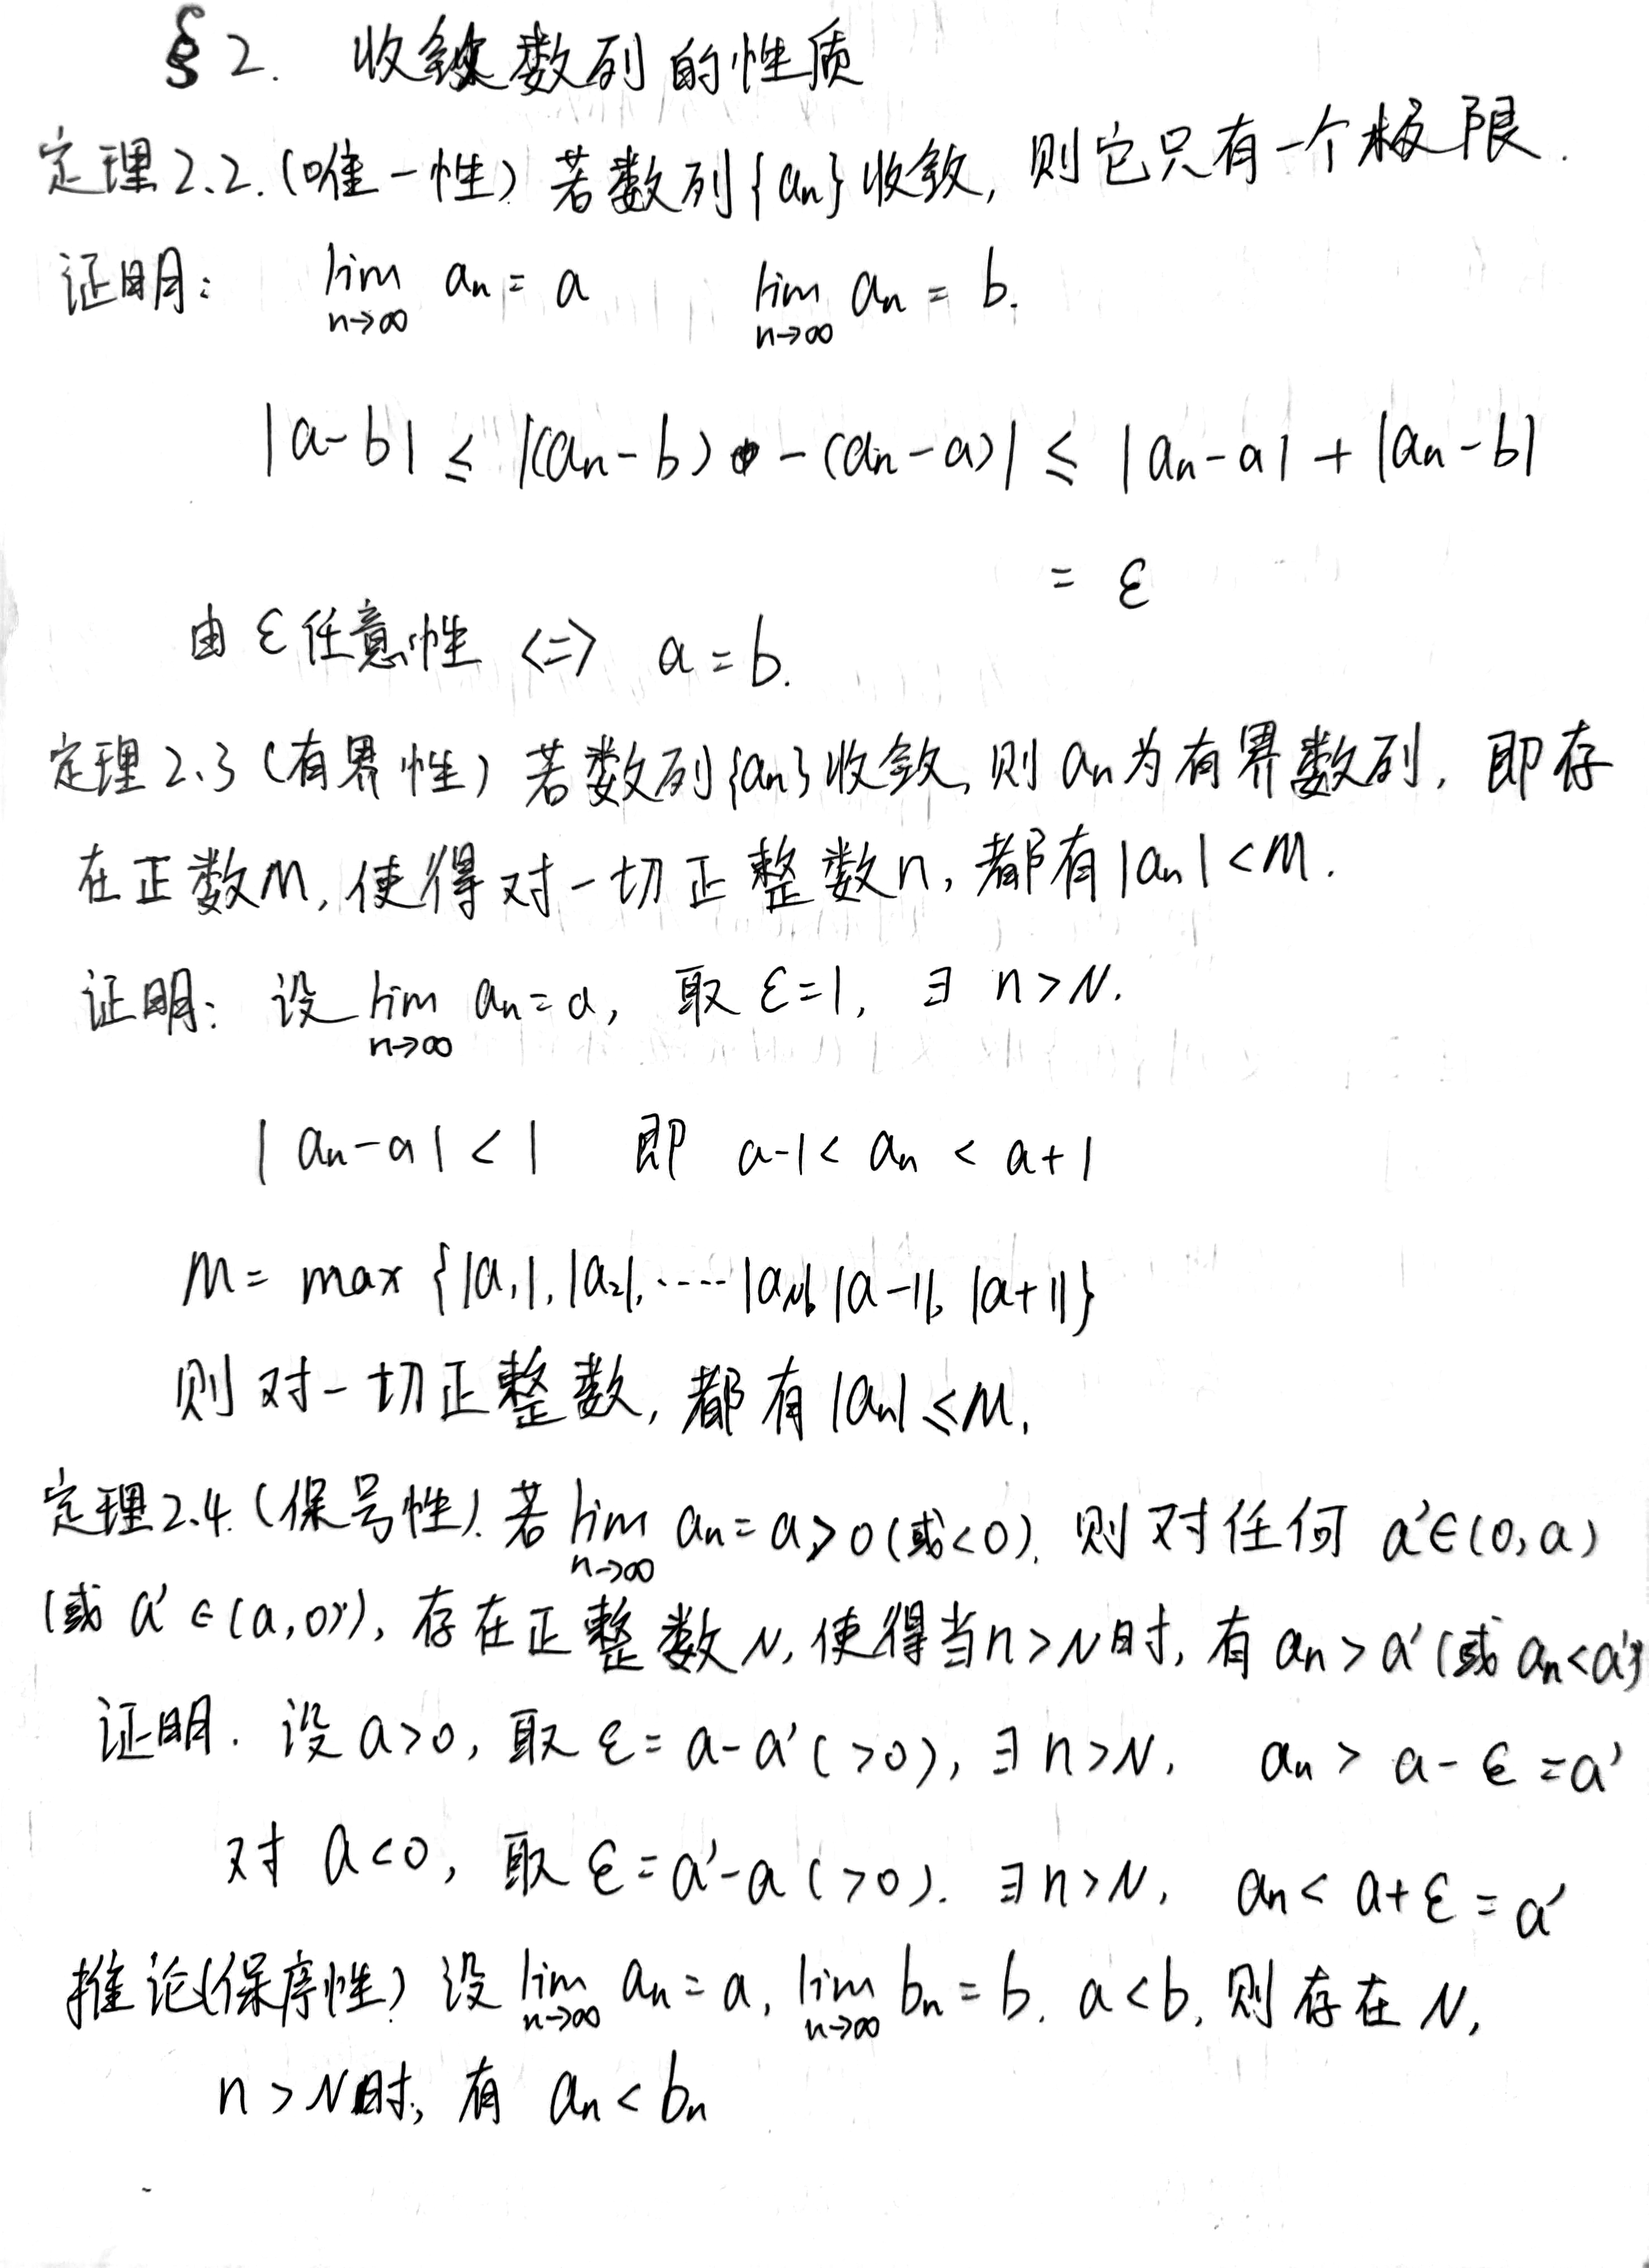 §2. 收敛数列的性质
定理2.2.(唯一性) 若数列{an}收敛, 则它只有一个极限.
证明: lim n→∞ an = a lim n→∞ an = b.
|a-b| ≤ |(an-b) -(an-a)| ≤ |an-a| + |an-b|
= ε
由ε任意性 <=> a=b.
定理2.3(有界性) 若数列{an}收敛, 则an为有界数列, 即存
在正数M, 使得对一切正整数n, 都有|an|<M.
证明: 设 lim n→∞ an=a, 取 ε=1, ∃ n>N.
|an-a|<1 即 a-1< an < a+1
M= max {|a1|, |a2|, ····· |aN|, |a-1|, |a+1|}
则对一切正整数, 都有|an|≤M.
定理2.4.(保号性). 若 lim n→∞ an=a>0(或<0). 则对任何 a'∈(0,a)
(或 a'∈(a,0)), 存在正整数N, 使得当n>N时, 有 an>a'(或an<a')
证明. 设a>0, 取 ε=a-a'(>0), ∃n>N, an > a-ε=a'
对 a<0, 取 ε=a'-a(>0). ∃n>N, an< a+ε=a'
推论(保序性) 设 lim n→∞ an=a, lim n→∞ bn=b. a<b, 则存在N,
n>N时, 有 an<bn